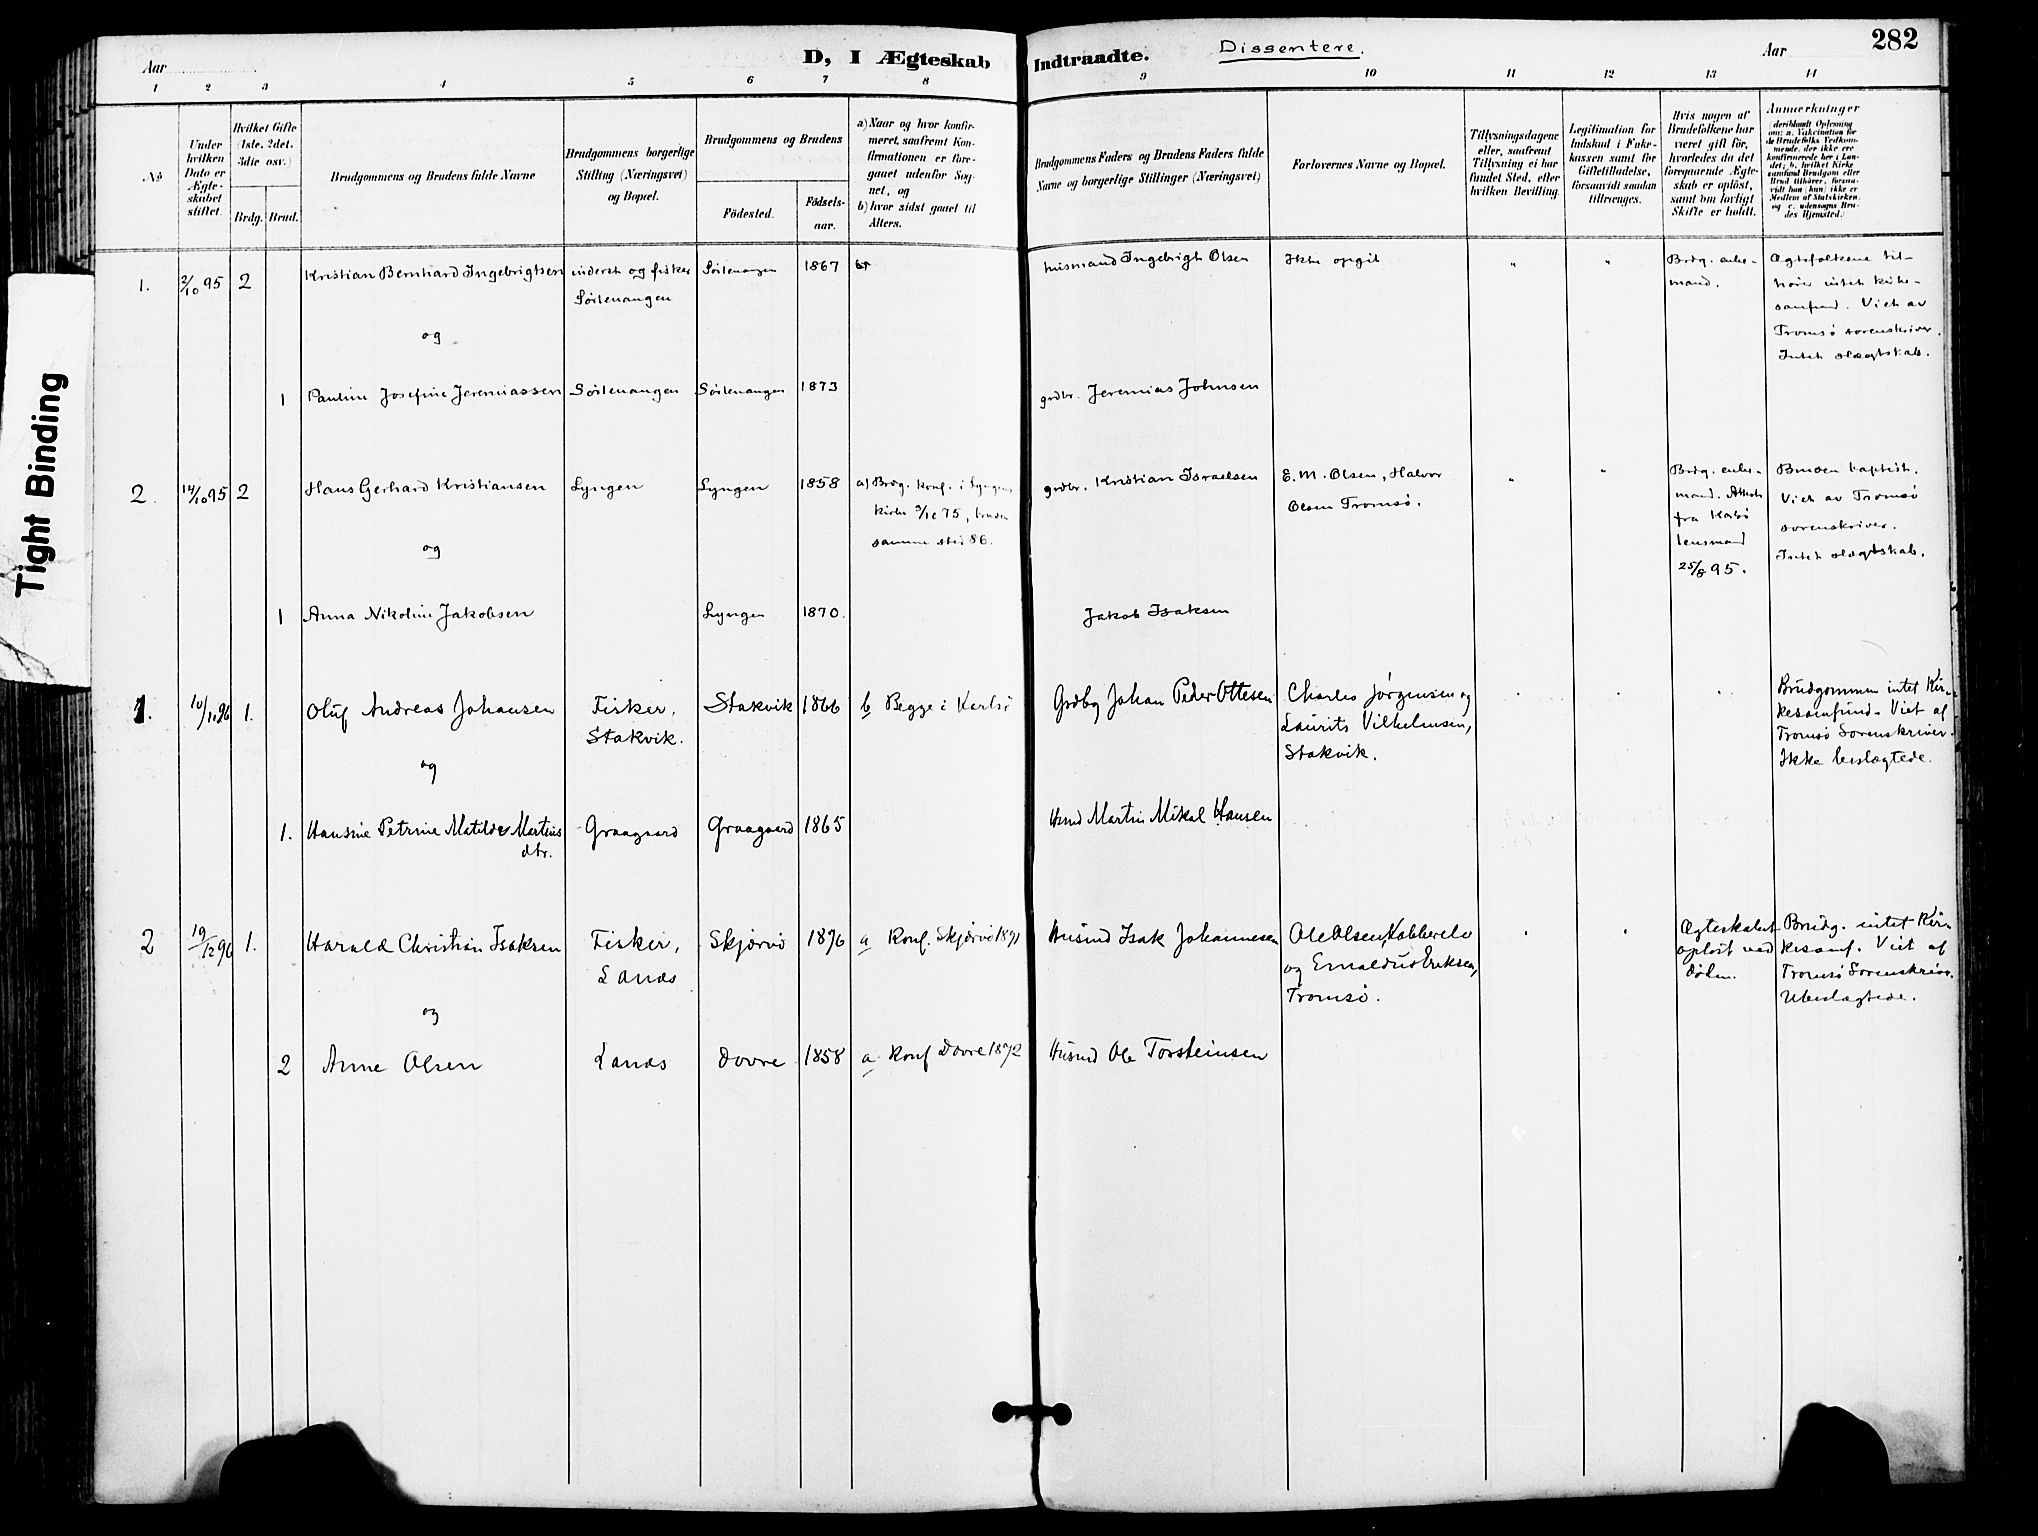 Tight Binding
Aar
D, I Ægteskab
Indtraadte.
Dissentere.
Aar
282
1 2 3 4 5 6 7 8 9 10 11 12 13 14
No
Under
hvilken
Dato er
Ægte-
skabet
stiftet.
Hvilket Gifte
(1ste, 2det,
3die osv.)
Brdg. Brud.
Brudgommens og Brudens fulde Navne
Brudgommens borgerlige
Stilling (Næringsvei)
og Bopæl.
Brudgommens og Brudens
Fødested.
Fødsels-
aar.
a) Naar og hvor konfir-
meret, saafremt Kon-
firmationen er fore-
gaaet udenfor Sog-
net, og
b) hvor sidst gaaet til
Alters.
Brudgommens Faders og Brudens Faders fulde
Navne og borgerlige Stillinger (Næringsvei)
Forlovernes Navne og Bopæl.
Tillysningsdagene
eller, saafremt
Tillysning ei har
fundet Sted, efter
hvilken Bevilling.
Legitimation for
Indskud i Enke-
kassen samt for
Giftetilladelse,
forsaavidt saadan
tiltrænges.
Hvis nogen af
Brudefolkene har
været gift før,
hvorledes da det
foregaaende Ægte-
skab er opløst,
samt om lovligt
Skifte er holdt.
Anmærkninger
(deriblandt Oplysning
om: a. Vakcination for
de Brudefolks Vedkom-
mende, der ikke ere
konfirmerede her i Lan-
det; b. hvilket Kirke
samfund Brudgom eller
Brud tilhører, forsaa-
vidt han (hun) ikke er
Medlem af Statskirken,
og c. udensogns Bru-
des Hjemsted.)
1. 2/10 95 2 Kristian Bernhard Ingebrigtsen inderst og fisker Sörlenangen 1867
Sörlenangen
husmand Ingebrigt Olsen Ikke opgit " " Brdg. enke-
mand.
Ægtefolkene til-
hører intet kirke-
samfund. Viet av
Tromsö sorenskriver.
Intet slægtskab.
og
1 Pauline Josefine Jeremiassen Sörlenangen Sörlenangen 1873 grdbr. Jeremias Johnsen
2. 14/10 95 2 Hans Gerhard Kristiansen Lyngen Lyngen 1858 a) Brdg. konf. i Lyngens
kirke 3/10 75, bruden
samme sted 86.
grdbr. Kristian Israelsen E. M. Olsen, Halvor
Olsen Tromsö.
" "
Brdg. enke-
mand. Attest
fra Karlsö
lensmand
25/8 95.
Bruden baptist.
Viet av Tromsö
sorenskriver.
Intet slægtskab.
og
1 Anna Nikoline Jakobsen Lyngen 1870. Jakob Isaksen
1. 10/10 96 1. Oluf Andreas Johansen Fisker, Stakvik 1866 b Begge i Karlsö
Stakvik.
Grdbg Johan Peder Ottesen Charles Jørgensen og
Laurits Vilhelmsen,
Stakvik.
Brudgommen intet Kir-
kesamfund. Viet af
Tromsö Sorenskriver.
Ikke beslægtede.
og
1. Hansine Petrine Matilde Martins
dtr.
Graagaard Graagaard 1865 Husmd Martin Mikal Hansen
2 19/12 96 1. Harald Christian Isaksen Fisker, Skjærvö 1876 a Konf. Skjærvö 1891
Lanæs
Husmd Isak Johannesen Ole Olsen, Kobberelv
og Emaldus Eriksen,
Tromsö.
Ægteskabet
opløst ved
døden.
Brudg. intet Kir-
kesamf. Viet af
Tromsö Sorenskriver.
Ubeslægtede.
og
2 Anne Olsen Lanæs Dovre 1858 a Konf Dovre 1872 Husmd Ole Torsteinsen